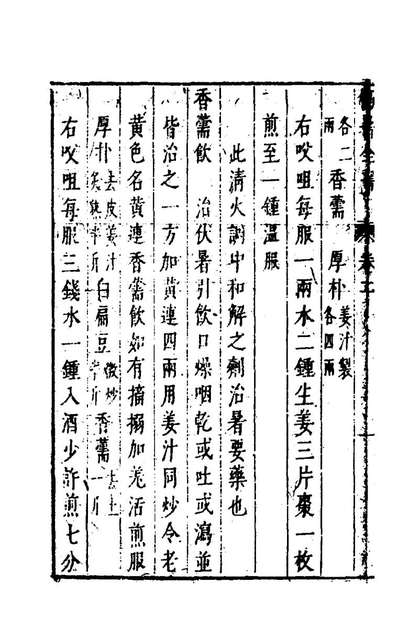 傷暑全書 卷
各二兩 香薷 厚朴 姜汁製各四兩
右㕮咀每服一兩水二鍾生姜三片棗一枚
煎至一鍾溫服
此清火調中和解之劑治暑要藥也
香薷飲 治伏暑引飲口燥咽乾或吐或瀉並
皆治之一方加黄連四兩用姜汁同炒令老
黄色名黄連香薷飲如有搐搦加羌活煎服
厚朴 去皮姜汁炙熟半斤 白扁豆 微炒半斤 香薷 去土一斤
右㕮咀每服三錢水一鍾入酒少許煎七分